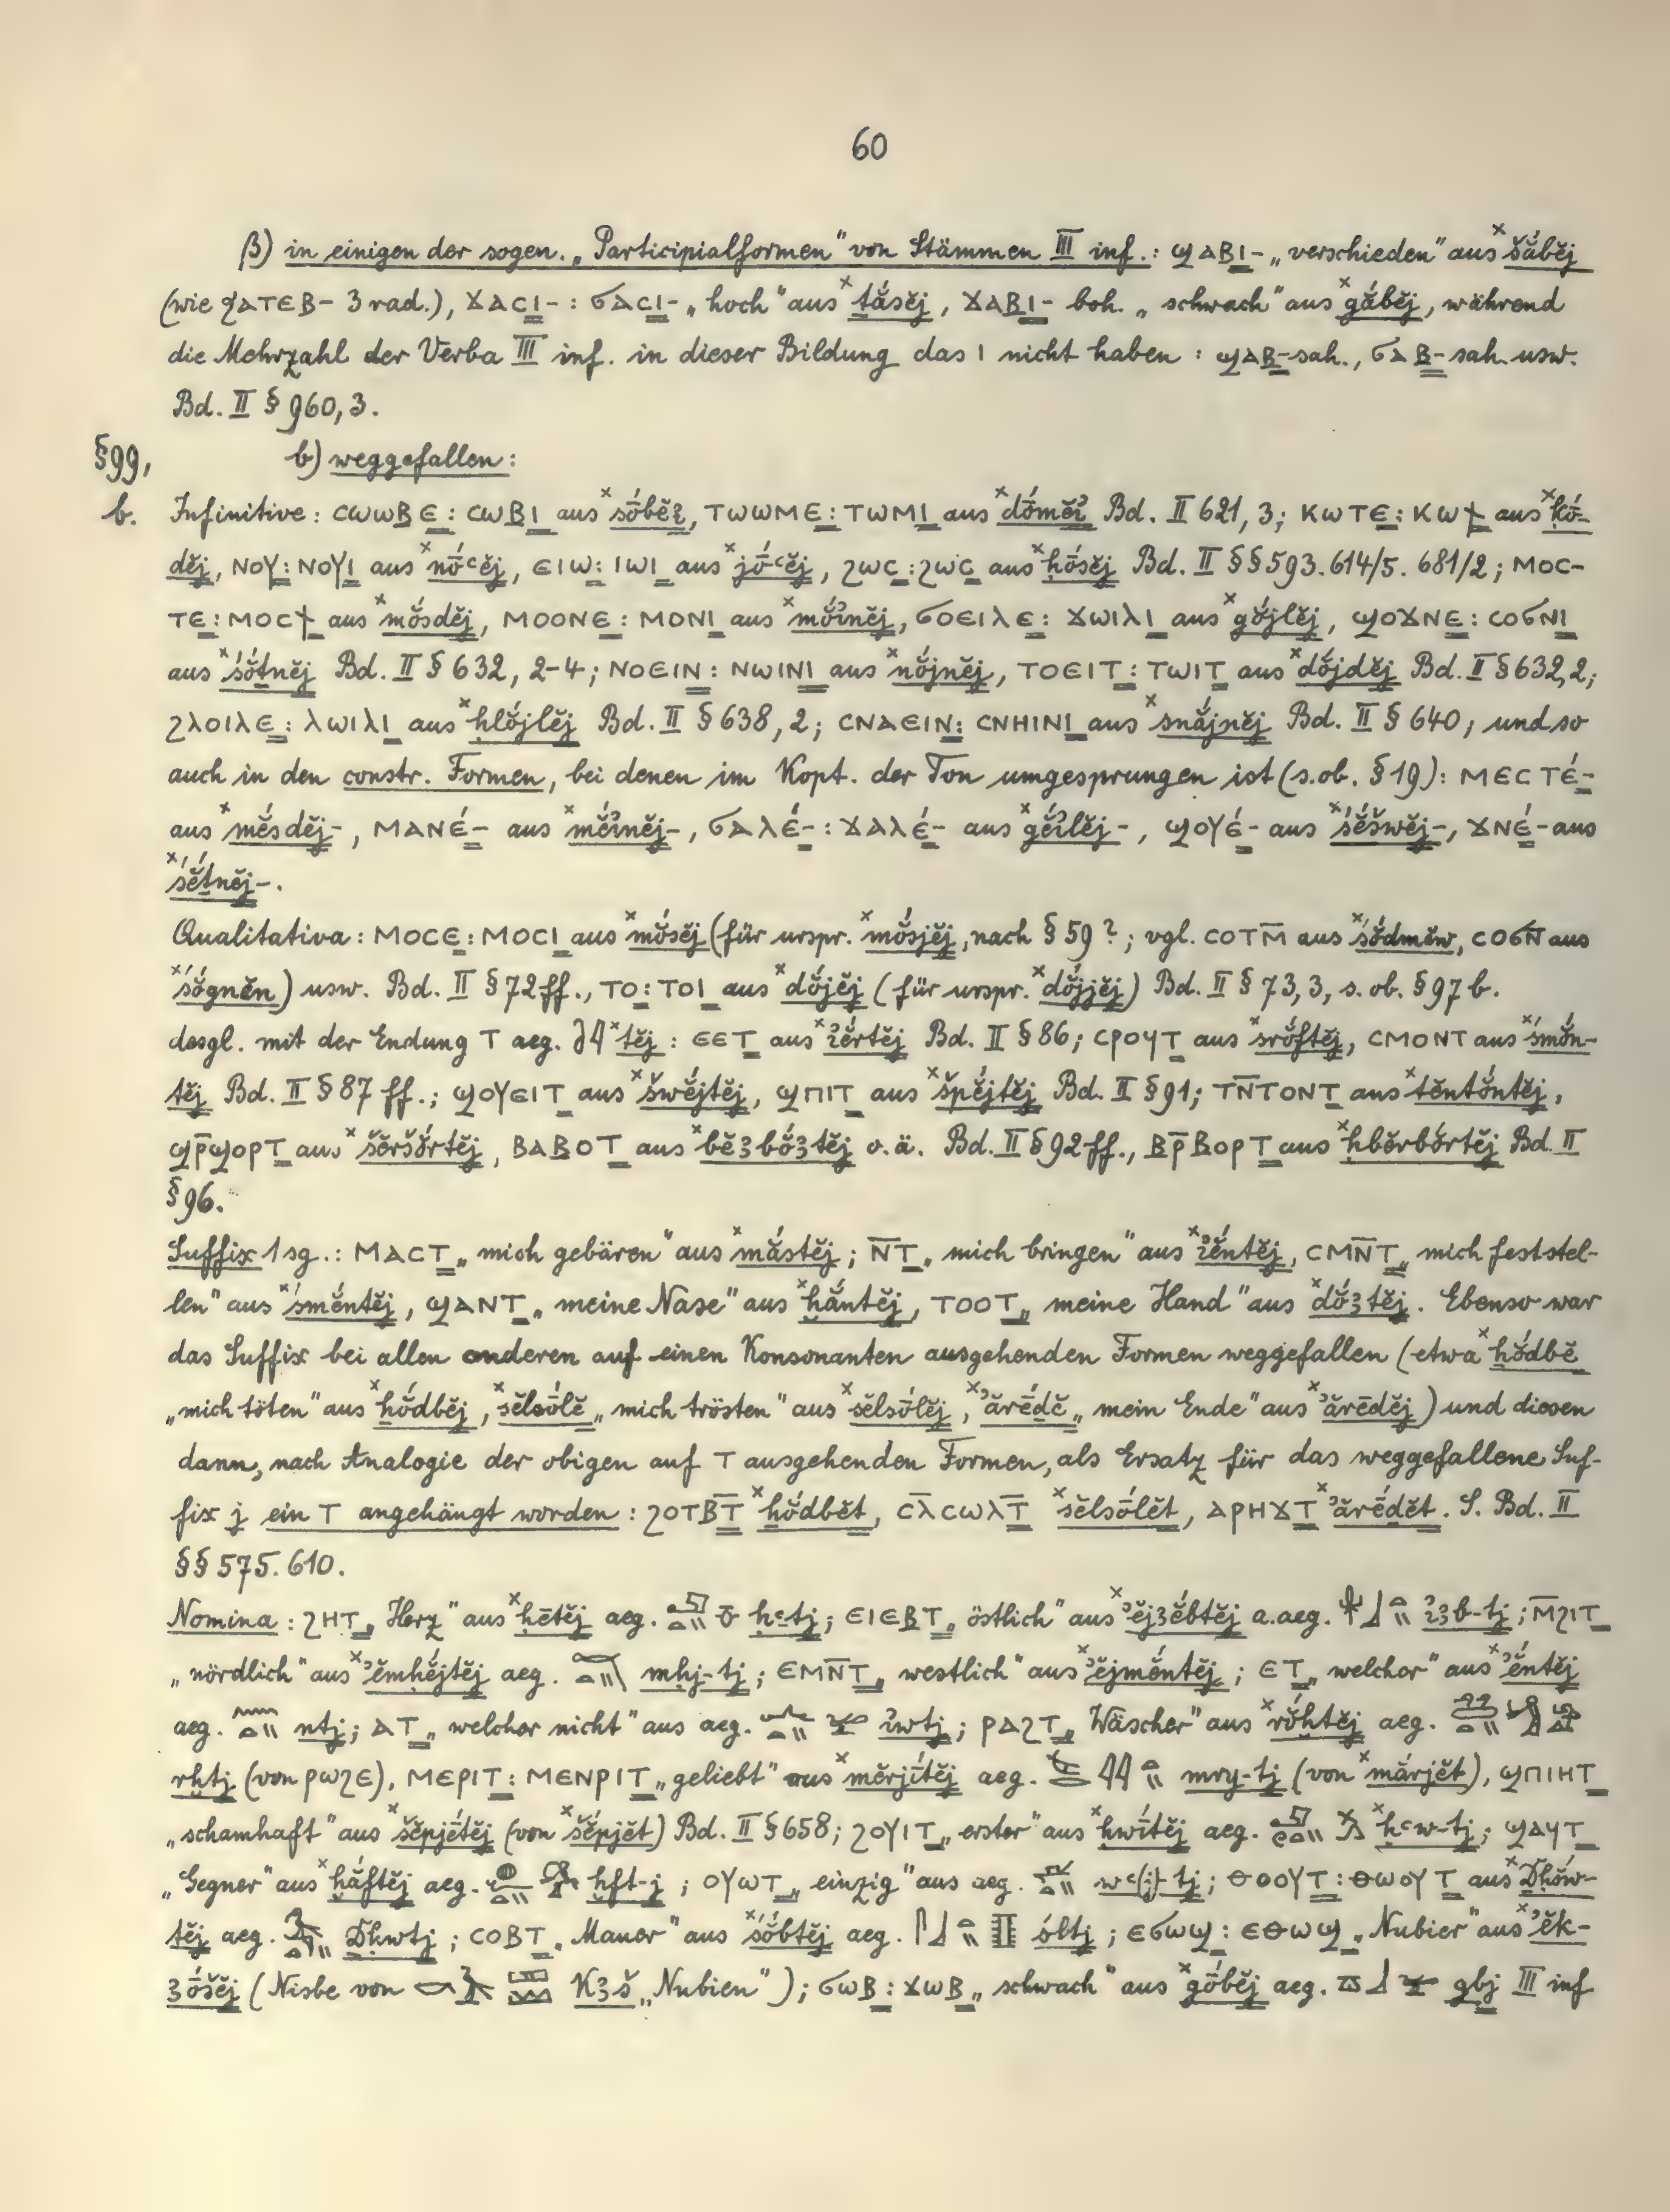 60
β) in einigen der sogen. „Participialformen" von Stämmen III inf.: ϣⲁⲃⲓ- „verschieden" aus ˣšắbĕj
(wie ϩⲁⲧⲉⲃ- 3 rad.), ϫⲁⲥⲓ- : ϭⲁⲥⲓ- „hoch" aus ˣṯắsĕj, ϫⲁⲃⲓ- boh. „schwach" aus ˣgắbĕj, während
die Mehrzahl der Verba III inf. in dieser Bildung das ⲓ nicht haben : ϣⲁⲃ- sah., ϭⲁⲃ- sah. usw.
Bd. II § 960, 3.
§99, b) weggefallen:
b. Infinitive: ⲥⲱⲱⲃⲉ : ⲥⲱⲃⲓ aus , ⲧⲱⲱⲙⲉ : ⲧⲱⲙⲓ aus Bd. II 621, 3; ⲕⲱⲧⲉ : ⲕⲱϯ aus ˣḳṓ-
dĕj, ⲛⲟⲩ : ⲛⲟⲩⲓ aus ˣnṓꜥĕj, ⲉⲓⲱ : ⲓⲱⲓ aus ˣjṓꜥĕj, ϩⲱⲥ : ϩⲱⲥ aus ˣḥṓsĕj Bd. II §§ 593. 614/5. 681/2; ⲙⲟⲥ-
ⲧⲉ : ⲙⲟⲥϯ aus ˣmŏ́sdĕj, ⲙⲟⲟⲛⲉ : ⲙⲟⲛⲓ aus ˣmŏ́ꞽnĕj, ϭⲟⲉⲓⲗⲉ : ϫⲱⲓⲗⲓ aus ˣgŏ́jlĕj, ϣⲟϫⲛⲉ : ⲥⲟϭⲛⲓ
aus ˣśŏ́ṯnĕj Bd. II § 632, 2-4; ⲛⲟⲉⲓⲛ : ⲛⲱⲓⲛⲓ aus ˣnŏ́jnĕj, ⲧⲟⲉⲓⲧ : ⲧⲱⲓⲧ aus ˣdŏ́jdĕj Bd. II § 632, 2;
ϩⲗⲟⲓⲗⲉ : ⲗⲱⲓⲗⲓ aus ˣḥlŏ́jlĕj Bd. II § 638, 2; ⲥⲛⲁⲉⲓⲛ : ⲥⲛⲏⲓⲛⲓ aus ˣsnắjnĕj Bd. II § 640; und so
auch in den constr. Formen, bei denen im Kopt. der Ton umgesprungen ist (s. ob. § 19): ⲙⲉⲥⲧⲉ́-
aus ˣmĕ́sdĕj-, ⲙⲁⲛⲉ́- aus ˣmĕ́ꞽnĕj-, ϭⲁⲗⲉ́- : ϫⲁⲗⲉ́- aus ˣgĕ́ꞽlĕj-, ϣⲟⲩⲉ́- aus ˣśĕ́šwĕj-, ϫⲛⲉ́- aus
ˣśĕ́ṯnĕj-.
Qualitativa: ⲙⲟⲥⲉ : ⲙⲟⲥⲓ aus ˣmŏ́sĕj (für urspr. ˣmŏ́sjĕj, nach § 59?; vgl. ⲥⲟⲧⲙ̄ aus ˣśŏ́dmĕw, ⲥⲟϭⲛ̄ aus
ˣśŏ́gnĕn) usw. Bd. II § 72 ff., ⲧⲟ : ⲧⲟⲓ aus ˣdŏ́jĕj (für urspr. ˣdŏ́jjĕj) Bd. II § 73, 3, s. ob. § 97 b.
desgl. mit der Endung ⲧ aeg. ˣtĕj : ⲉⲉⲧ aus ˣꞽĕ́rtĕj Bd. II § 86; ⲥⲣⲟϥⲧ aus ˣsrŏ́ftĕj, ⲥⲙⲟⲛⲧ aus ˣśmŏ́n-
tĕj Bd. II § 87 ff.; ϣⲟⲩⲉⲓⲧ aus ˣšwĕ́jtĕj, ϣⲡⲓⲧ aus ˣšpĕ́jtĕj Bd. II § 91; ⲧⲛ̄ⲧⲟⲛⲧ aus ˣtĕntŏ́ntĕj,
ϣⲣ̄ϣⲟⲣⲧ aus ˣšĕršŏ́rtĕj, ⲃⲁⲃⲟⲧ aus ˣbĕꜣbŏ́ꜣtĕj o. ä. Bd. II § 92 ff., ⲃⲣ̄ⲃⲟⲣⲧ aus ˣḥbĕrbŏ́rtĕj Bd. II
§ 96.
Suffix 1 sg.: ⲙⲁⲥⲧ „mich gebären" aus ˣmắstĕj; ⲛ̄ⲧ „mich bringen" aus ˣꞽĕ́ntĕj, ⲥⲙⲛ̄ⲧ „mich feststel-
len" aus ˣśmĕ́ntĕj, ϣⲁⲛⲧ „meine Nase" aus ˣḫắntĕj, ⲧⲟⲟⲧ „meine Hand" aus ˣdŏ́ꜣtĕj. Ebenso war
das Suffix bei allen anderen auf einen Konsonanten ausgehenden Formen weggefallen (etwa ˣḫŏ́dbĕ
„mich töten" aus ˣḫŏ́dbĕj, ˣsĕlsṓlĕ „mich trösten" aus ˣsĕlsṓlĕj, ˣꜣărḗdĕ „mein Ende" aus ˣꜣărḗdĕj) und diesen
dann, nach Analogie der obigen auf ⲧ ausgehenden Formen, als Ersatz für das weggefallene Suf-
fix j ein ⲧ angehängt worden : ϩⲟⲧⲃⲧ̄ ˣḫŏ́dbĕt, ⲥⲗ̄ⲥⲱⲗⲧ̄ ˣsĕlsṓlĕt, ⲁⲣⲏϫⲧ̄ ˣꜣărḗdĕt. S. Bd. II
§§ 575. 610.
Nomina : ϩⲏⲧ „Herz" aus ˣḥḗtĕj aeg. ḥꜥtj; ⲉⲓⲉⲃⲧ „östlich" aus ˣꜣĕjꜣĕ́btĕj a. aeg. ꞽꜣb-tj; ⲙ̄ϩⲓⲧ
„nördlich" aus ˣꜣĕmḥĕ́jtĕj aeg. mḥj-tj; ⲉⲙⲛ̄ⲧ „westlich" aus ˣꜣĕjmĕ́ntĕj; ⲉⲧ „welcher" aus ˣꜣĕ́ntĕj
aeg. ntj; ⲁⲧ „welcher nicht" aus aeg. ꞽwtj; ⲣⲁϩⲧ „Wäscher" aus ˣrŏ́ḫtĕj aeg.
rḫtj (von ⲣⲱϩⲉ), ⲙⲉⲣⲓⲧ : ⲙⲉⲛⲣⲓⲧ „geliebt" aus ˣmĕrjítĕj aeg. mry-tj (von ˣmắrjĕt), ϣⲡⲓⲏⲧ
„schamhaft" aus ˣšĕpjétĕj (von ˣšĕ́pjĕt) Bd. II § 658; ϩⲟⲩⲓⲧ „erster" aus ˣḥwítĕj aeg. ˣḥꜥw-tj; ϣⲁϥⲧ
„Gegner" aus ˣḫắftĕj aeg. ḫft-j; ⲟⲩⲱⲧ „einzig" aus aeg. wꜥ(j)-tj; ⲑⲟⲟⲩⲧ : ⲑⲱⲟⲩⲧ aus ˣDḥŏ́w-
tĕj aeg. Dḥwtj; ⲥⲟⲃⲧ „Mauer" aus ˣśŏ́btĕj aeg. śbtj; ⲉϭⲱϣ : ⲉⲑⲱϣ „Nubier" aus ˣꜣĕk-
ꜣṓšĕj (Nisbe von Kꜣš „Nubien"); ϭⲱⲃ : ϫⲱⲃ „schwach" aus ˣgṓbĕj aeg. gbj III inf